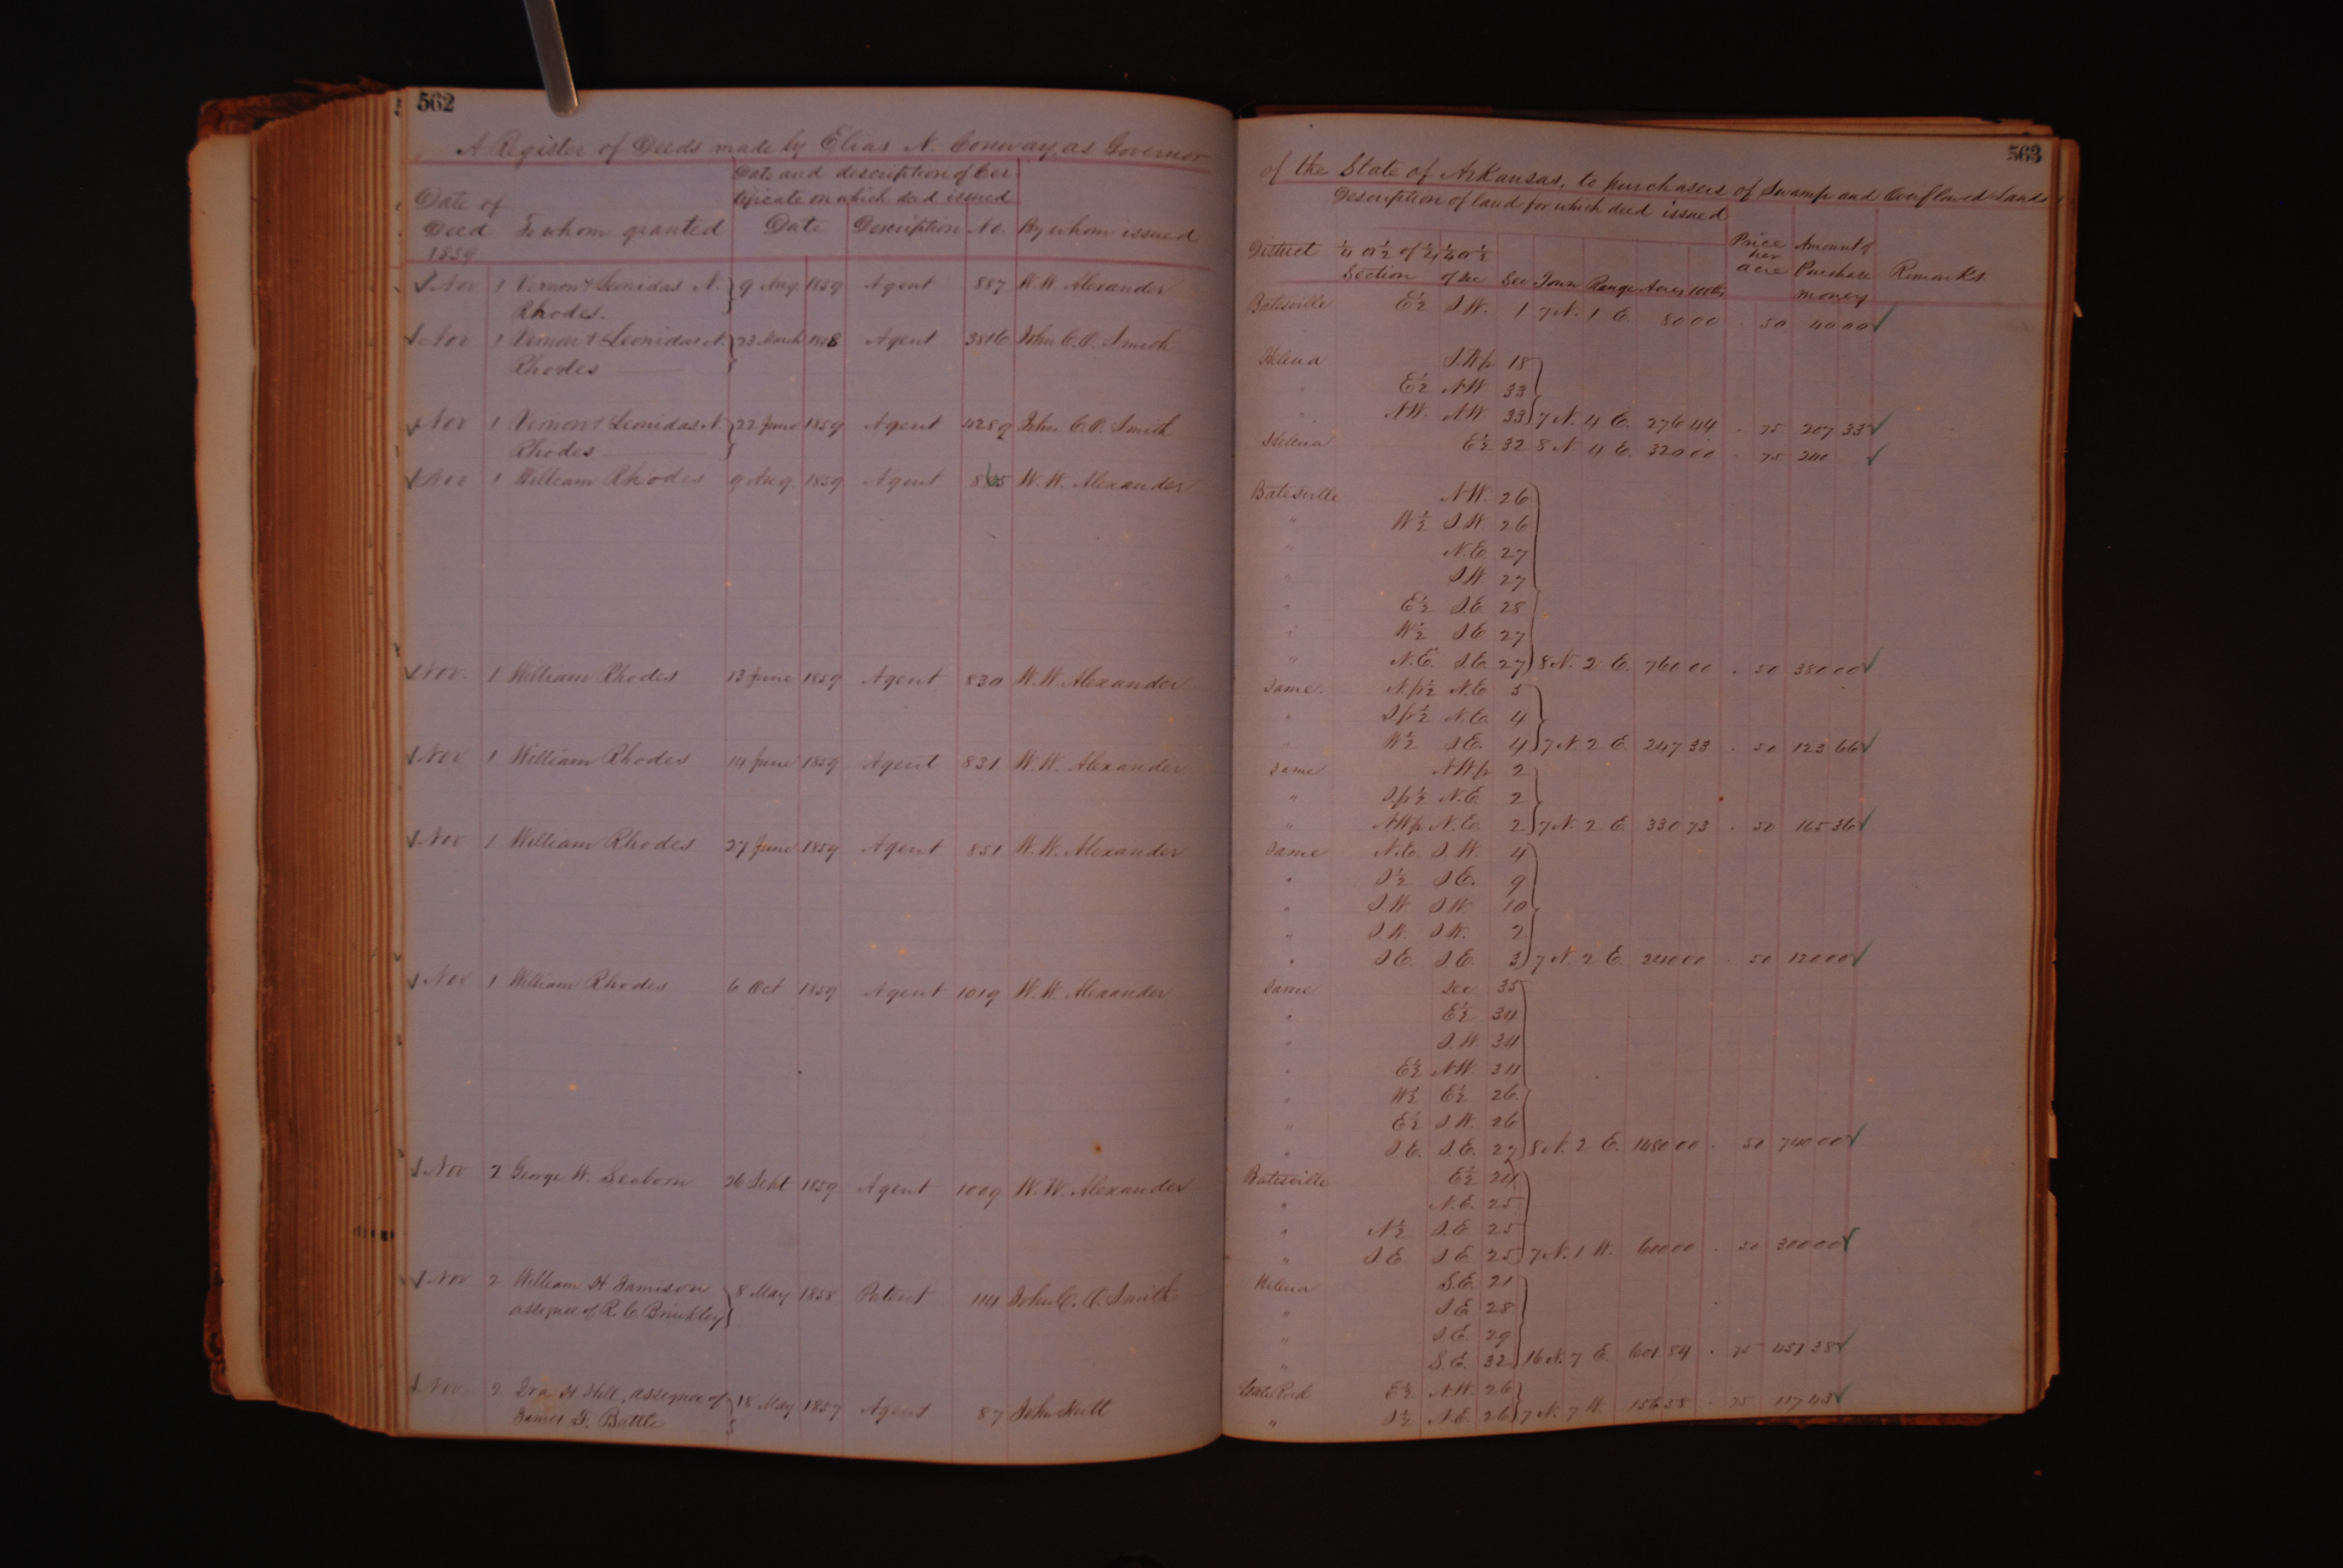 562
A Register of Deeds made by Elias N. Conway, as Governor
Date and description of Cer
tificate on which deed issued
Date of
Deed To whom granted Date Description No. By whom issued
1859
Nov 1 Vernon & Leonidas N. 9 Aug 1859 Agent 887 W. W. Alexander
Rhodes.
Nov 1 Vernon & Leonidas N. 23 March 1858 Agent 3816 John C. O. Smith
Rhodes
Nov 1 Vernon & Leonidas N. 22 June 1859 Agent 4289 John C. O. Smith
Rhodes
Nov 1 William Rhodes 9 Aug. 1859 Agent W. W. Alexander
Nov. 1 William Rhodes 13 June 1859 Agent 830 W. W. Alexander
Nov 1 William Rhodes 14 June 1859 Agent 831 W. W. Alexander
Nov 1 William Rhodes 27 June 1859 Agent 851 W. W. Alexander
Nov 1 William Rhodes 6 Oct 1859 Agent 1019 W. W. Alexander
Nov 2 George W. Seaborn 26 Sept 1859 Agent 1009 W. W. Alexander
Nov 2 William H Jamison 8 May 1858 Patent 114 John C. O. Smith
assignee of R. C. Brinkley
Nov 2 Ira H Hill, assignee of 18 May 1857 Agent 87 John Hutt
James F. Battle
563
of the State of Arkansas, to purchasers of Swamp and Overflowed Lands
Description of land for which deed issued
District ¼ or ½ of ½, ¼ or ½ Price per Amount of
Section of Sec Sec Town Range Acres 100ths acre Purchase Remarks.
money
Batesville E½ S.W. 1 7 N. 1 E. 80 00 . 50 40 00
Helena S.W fr 18
" E½ N.W 33
" N.W. N.W. 33 7 N. 4 E. 276 44 . 75 207 33
Helena E½ 32 8 N 4 E. 320 00 . 75 240
Batesville N.W. 26
" W½ S.W 26
" N.E. 27
" S.W. 27
" E½ S.E 28
" W½ S.E. 27
" N.E. S.E. 27 8 N. 2 E. 760 00 . 50 380 00
Same N.fr½ N.E 5
" S fr½ N.E. 4
" W½ S.E. 4 7 N. 2 E. 247 33 . 50 123 66
Same N.W fr 2
" S.fr½ N.E. 2
" N.W fr N.E. 2 7 N. 2 E. 330 73 . 50 165 36
Same N.E. S.W. 4
" S½ S.E. 9
" S.W. S.W. 10
" S.W. S.W. 2
" S.E. S.E. 3 7 N. 2 E. 240 00 . 50 120 00
Same Sec 35
" E½ 34
" S.W. 34
" E½ N.W. 34
" W½ E½ 26
" E½ S.W. 26
" S.E. S.E. 27 8 N. 2 E. 1480 00 . 50 740 00
Batesville E½ 24
" N.E. 25
" N½ S.E 25
" S.E. S.E. 25 7 N. 1 W. 600 00 . 50 300 00
Helena S.E. 21
" S.E. 28
" S.E. 29
" S.E. 32 16 N. 7 E. 601 84 . 75 451 38
Little Rock E½ N.W. 26
" S½ N.E. 26 7 N. 7 W. 156 58 . 75 117 43